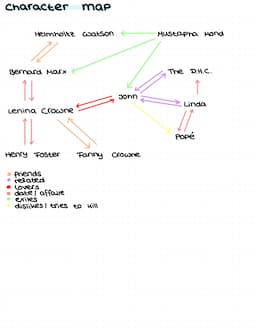 character map
Helmholtz Watson Mustapha Mond
Bernard Marx The D.H.C.
John
Linda
Lenina Crowne
Popé
Henry Foster Fanny Crowne
friends
related
lovers
date / affaire
exiles
dislikes / tries to kill